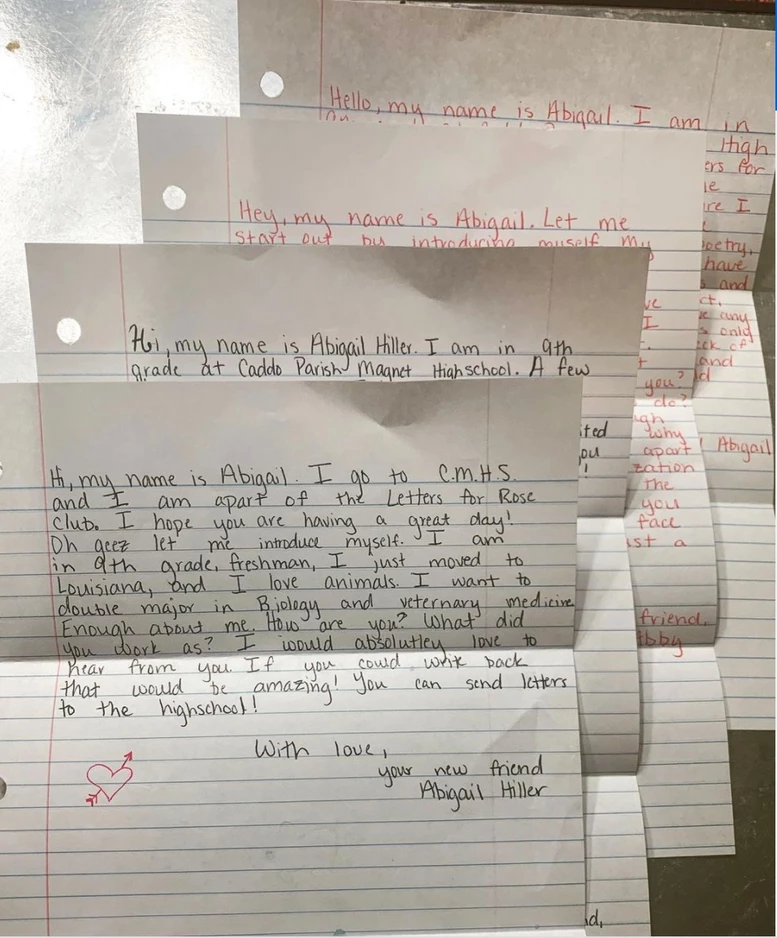 Hello, my name is Abigail. I am in
High
ers for
re I
poetry,
have
and
ct.
any
only
ck of
and
Abigail
Hey, my name is Abigail. Let me
start out by introducing myself My
ve
I
you?
do?
ugh
why
apart
zation
the
you
face
ust a
friend,
Abby
Hi, my name is Abigail Hiller. I am in 9th
grade at Caddo Parish Magnet Highschool. A few
ited
ou
!
nd,
Hi, my name is Abigail. I go to C.M.H.S.
and I am apart of the Letters for Rose
Club. I hope you are having a great day!
Oh geez let me introduce myself. I am
in 9th grade, freshman, I just moved to
Louisiana, and I love animals. I want to
double major in Biology and veternary medicine
Enough about me. How are you? What did
you work as? I would absolutley love to
hear from you. If you could write back
that would be amazing! You can send letters
to the highschool!
With love,
your new friend
Abigail Hiller